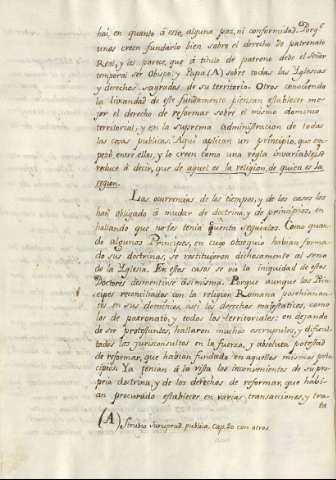 hai, en quanto á esto, alguna paz, ni conformidad. Porq.
unos creen fundarlo bien sobre el derecho de patronato
Real, y les parece, que á titulo de patrono debe el Señor
temporal ser Obispo, y Papa (A) sobre todas las Yglesias
y derechos sagrados de su territorio. Otros conociendo
la liviandad de este fundamento piensan establecer me-
jor el derecho de reformar sobre el mismo dominio
territorial, y en la suprema administracion de todas
las cosas publicas. Aqui aplican un principio, que em-
pezó entre ellos, y lo creen como una regla invariable: se
reduce á decir, que de aquel es la religion, de quien es la
region.
Las ocurrencias de los tiempos, y de los casos los
han obligado á mudar de doctrina, y de principios, en
hallando que no les tenia quenta seguirlos. Como quan-
do algunos Principes, en cuyo obsequio habian forma-
do sus doctrinas, se restituyeron dichosamente al seno
de la Yglesia. En estos casos se vió la iniquidad de estos
Doctores desmentirse asimisma. Porque aunque los Prin-
cipes reconciliados con la religion Romana
en sus dominios, asi los derechos magestaticos, como
los de patronato, y todos los territoriales: en dejando
de ser protestantes, hallaron muchos escrupulos, y dificul-
tades los jurisconsultos en la fuerza, y absoluta potestad
de reformar, que habian fundado en aquellos mismos prin-
cipios. Ya tenian á la vista los inconvenientes de su pro-
pria doctrina, y de los derechos de reformar, que habi-
an procurado establecer en varias transacciones, y trata
(A) Jurisprud. publica. Cap. 20 con otros.